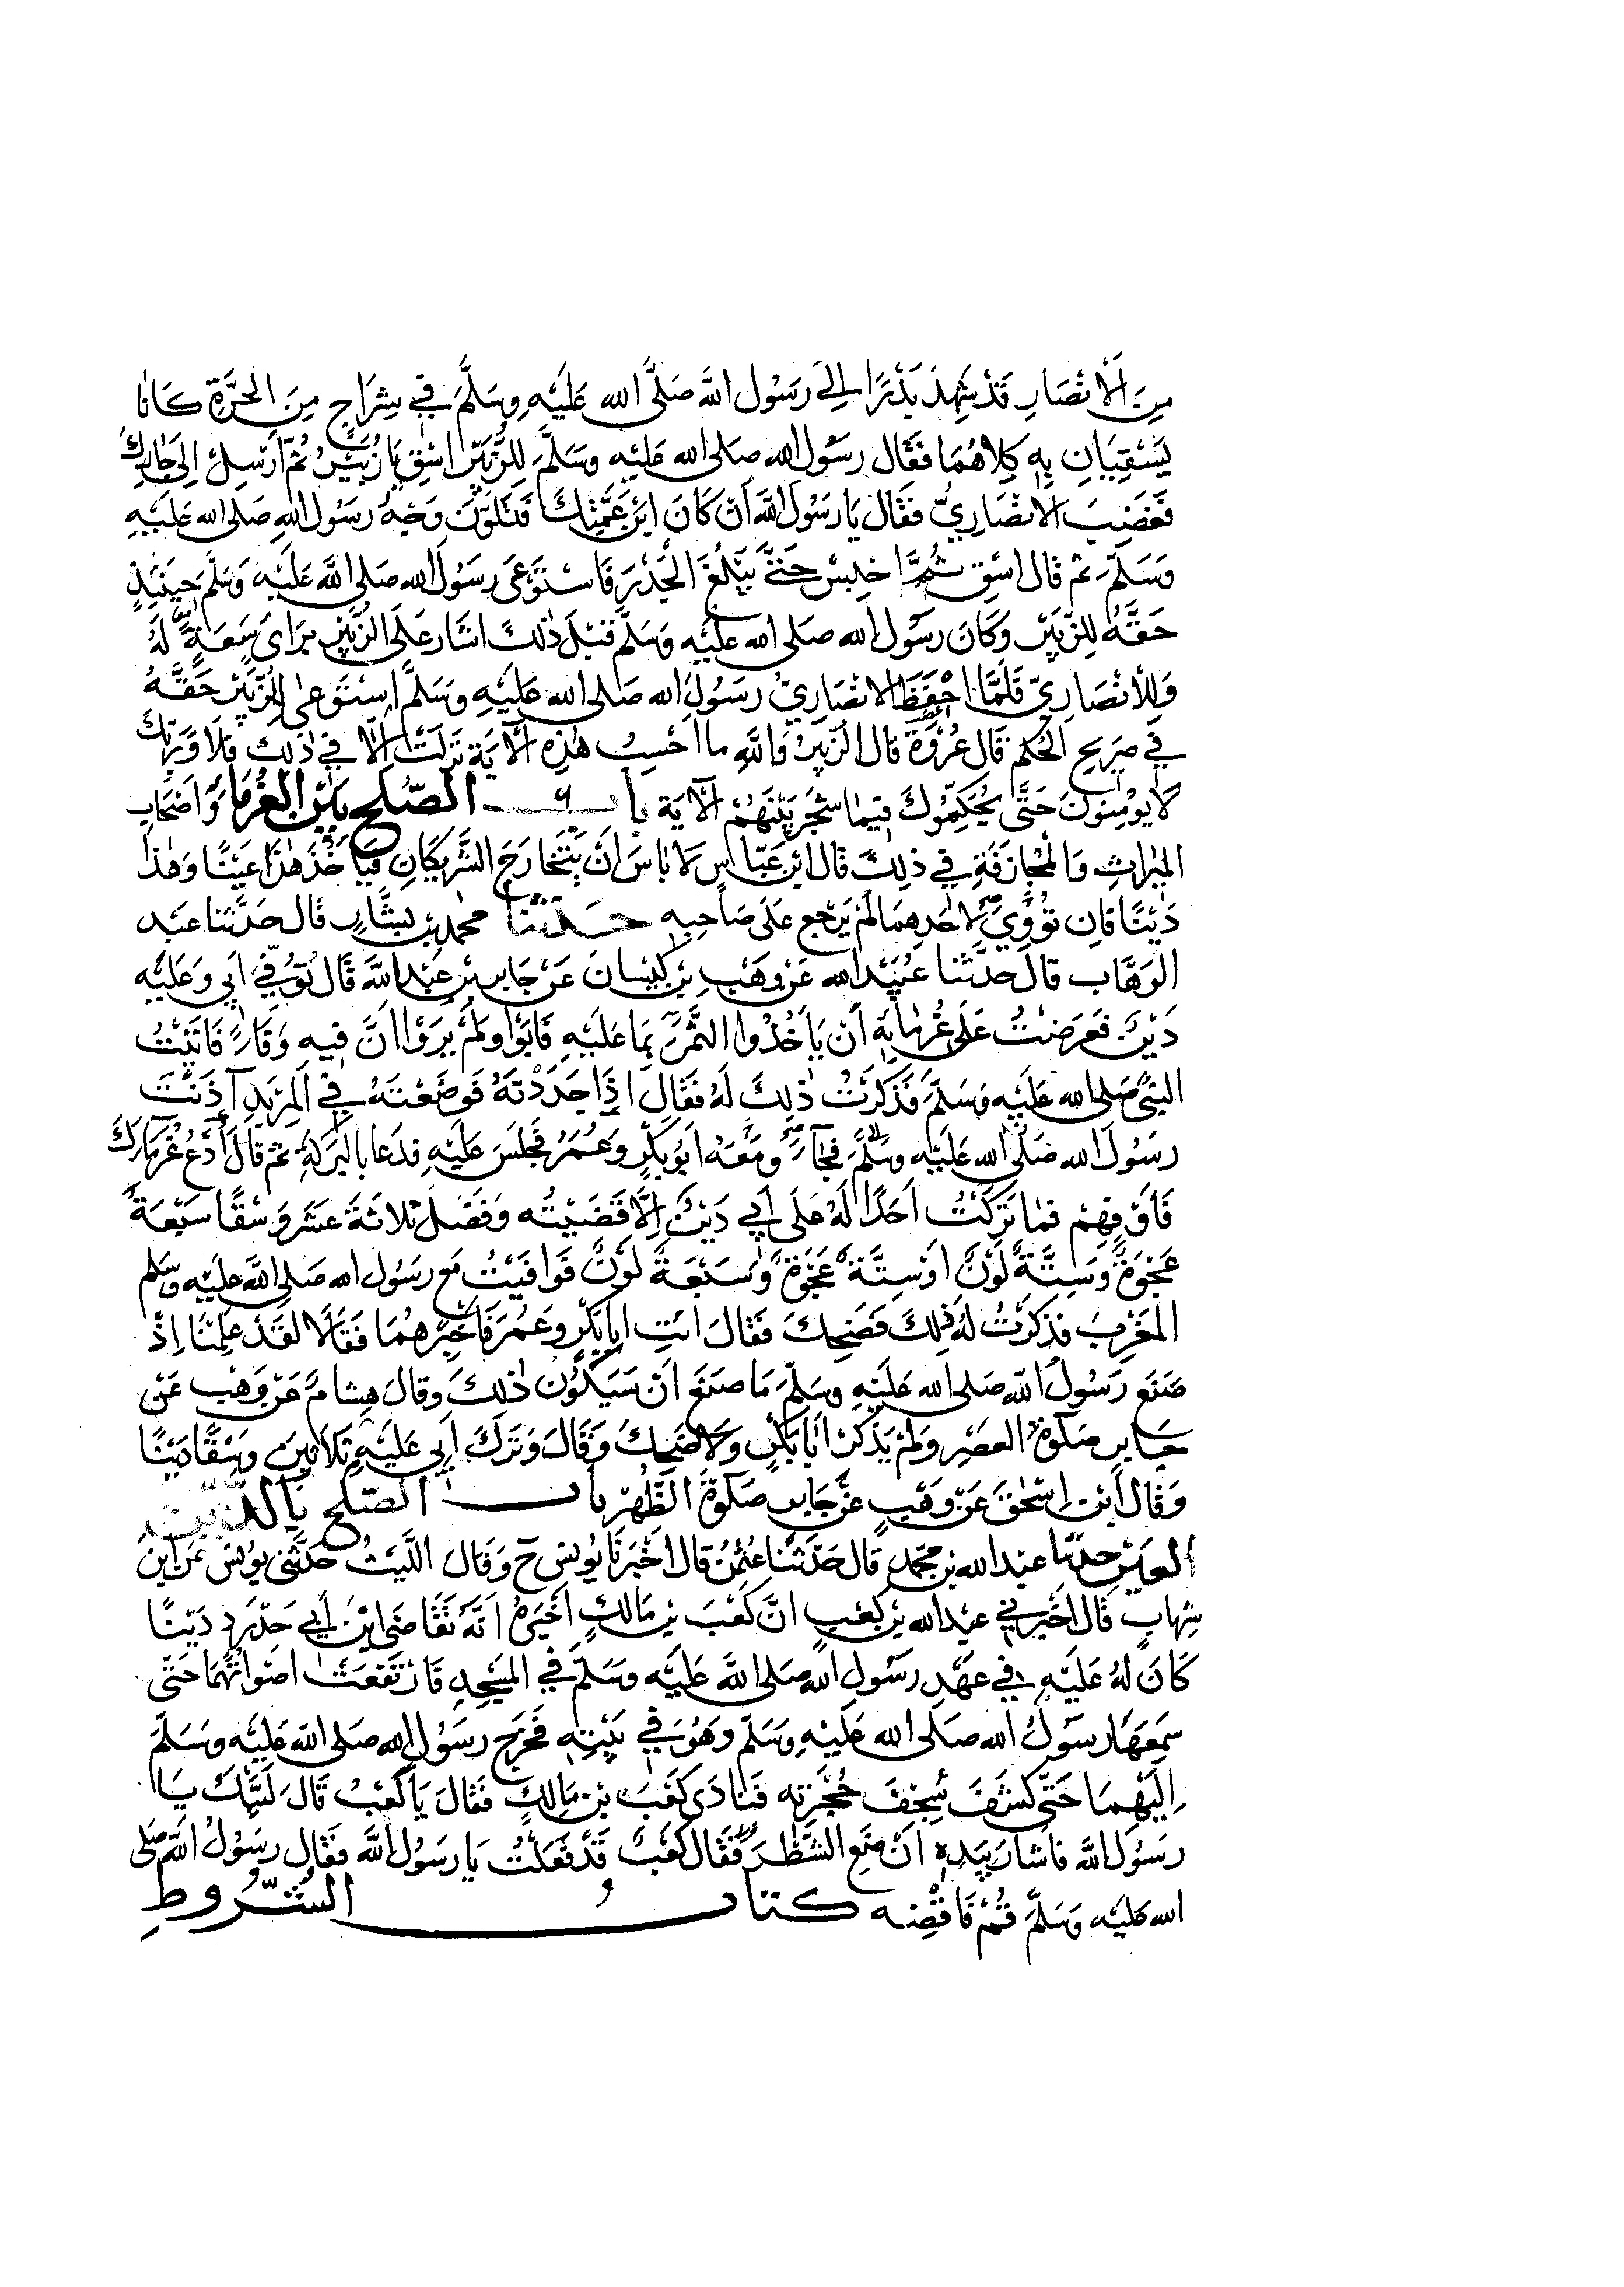 مِنَ الْاَنْصَارِ قَدْ شَهِدَ بَدْرًا اِلَى رَسُوْلِ اللَّهِ صَلَّى الله عَلَيْهِ وَسَلَّمَ فِي شِرَاجٍ مِنَ الحَرَّةِ كَانَا
يَسْقِيَانِ بِهِ كِلَاهُمَا فَقَال رسُوْلُ الله صلى الله عليه وسَلَّمَ لِلزُّبَيْرِ اسْقِ يَا زُبَيْرُ ثُمَّ اَرْسِلْ اِلَى جَارِكَ
فَغَضِبَ الانْصَارِيُّ فقَال يَا رسُوْلَ اللَّهِ اَنْ كَانَ ابْنَ عَمَّتِكَ فَتَلَوَّنَ وَجْهُ رسُوْلِ اللهِ صَلى الله عَلَيْهِ
وَسَلَّمَ ثم قَال اسْقِ ثُمَّ احْبِسْ حَتَّى يَبْلُغَ الْجَدْرَ فَاسْتَوْعَى رسُوْلُ الله صَلى اللَّهُ عَلَيْهِ وَسَلَّمَ حِينَئِذٍ
حَقَّهُ لِلزُّبَيْرِ وكَانَ رسُوْلُ الله صلى الله عليْهِ وَسَلَّم قَبْلَ ذٰلكَ اشَارَ عَلَى الزُّبَيْرِ بِرَأيٍ سَعَةٍ لَهُ
وَلِلْاَنْصَارِيِّ فَلَمَّا احْفَظَ الانْصَارِيُّ رسُوْلَ الله صَلى الله عَلَيْهِ وَسَلَّمَ اسْتَوْعٰى لِلزُّبَيْرِ حَقَّهُ
فِي صَرِيحِ الحُكْمِ قَال عُرْوَةُ قال الزُّبَيْرُ وَاللَّهِ ما احْسِبُ هٰذِهِ الآيَةَ نَزَلَتْ اِلَّا فِي ذٰلِكَ فَلَا وَرَبِّكَ
لَا يُؤْمِنُونَ حَتَّى يُحَكِّمُوْكَ فِيْمَا شَجَرَ بَيْنَهُمْ الْآيَة باب الصُّلْحِ بَيْنَ الغُرَمَاءِ وَاَصْحَابِ
المِيرَاثِ وَالْمُجَازَفَةِ فِي ذلِكَ قال ابْن عَبَّاسٍ لَا بَاسَ اَنْ يَتَخَارَجَ الشَّرِيْكَانِ فَيَاْخُذَ هٰذَا عَيْنًا وَهٰذَا
دَيْنًا فَاِن تَوِيَ لِاَحَدِهِمَا لَمْ يَرْجِع عَلَى صَاحِبِهِ حَدَّثَنَا محمد بن بشَّارٍ قَال حَدَّثنا عَبْد
الوَهَّاب قالَ حَدَّثَنا عُبَيْدُ الله عَنْ وَهْبِ بْنِ كَيْسَانَ عَنْ جَابِرِ بْنِ عَبْدِ اللَّهِ قَال تُوُفِّيَ اَبِي وَعَلَيْهِ
دَيْنٌ فَعَرَضْتُ عَلَى غُرَمَائِهِ اَنْ يَاْخُذُوا التَّمْرَ بِمَا عَلَيْهِ فَاَبَوْا وَلَمْ يَرَوْا اَنَّ فِيهِ وَفَاءً فَاَتَيْتُ
النبيَّ صَلى الله عَلَيْهِ وَسَلَّمَ فَذَكَرْتُ ذٰلِكَ لَهُ فَقَالَ اِذَا جَدَدْتَهُ فَوَضَعْتَهُ فِي المِرْبَدِ آذَنْتَ
رسُوْلَ الله صَلى الله عَلَيْهِ وسَلَّمَ فجَاءَ ومَعَهُ اَبُوْ بَكْرٍ وعُمَرُ فَجَلَسَ عَلَيْهِ فدَعَا بِالْبَرَكَةِ ثم قَالَ ادْعُ غُرَمَاءَكَ
فَاَوْفِهِمْ فمَا تَرَكْتُ اَحَدًا لَهُ عَلَى اَبِي دَيْنٌ اِلَّا قَضَيْتُه وَفَضَلَ ثَلاثَةَ عَشَرَ وَسْقًا سَبْعَةٌ
عَجْوَةٌ وَسِتَّةٌ لَوْنٌ اَوْ سِتَّةٌ عَجْوَةٌ وَسَبْعَةٌ لَوْنٌ فَوَافَيْتُ مَعَ رسُوْلِ الله صَلى اللَّه عليْهِ وسَلم
المَغْرِبَ فذَكَرْتُ لَهُ ذٰلِكَ فَضَحِكَ فَقَالَ ائتِ ابا بَكْرٍ وعُمَرَ فَاَخْبِرْهُمَا فَقَالَا لقَدْ عَلِمْنَا اِذْ
صَنَعَ رَسُوْلُ اللَّهِ صَلى الله عَلَيْهِ وسَلَّمَ مَا صَنَعَ اَنْ سَيَكُوْن ذٰلِكَ وقَالَ هِشَامٌ عَنْ وَهْبٍ عَنْ
جَابِرٍ صَلٰوةَ العَصْرِ وَلَمْ يَذْكُرْ اَبَا بَكْرٍ وَلَا ضَحِكَ وَقَالَ وَتَرَكَ اَبِي عَلَيْهِ ثَلَاثِينَ وَسْقًا دَيْنًا
وَقَال ابْن اِسْحٰقَ عَنْ وَهْبٍ عَنْ جَابِرٍ صَلٰوةَ الظُّهْرِ بَاب الصُّلْحِ بِالدَّيْنِ
والعين حدثنا عبد الله بن مُحَمدٍ قَال حَدَّثَنا عُثْمٰنُ قال اَخْبَرَنَا يُونُس ح وَقَال اللَّيْثُ حَدَّثَنِي يُونُسُ عَن ابْن
شِهَابٍ قَال اَخْبَرَنِي عَبْد الله بن كَعْبٍ انَّ كَعْبَ بْن مَالِكٍ اَخْبَرَهُ اَنَّهُ تَقَاضَى ابْنَ اَبِي حَدْرَدٍ دَيْنًا
كَانَ لَهُ عَلَيْهِ فِي عَهْدِ رسُوْلِ الله صَلى اللَّهُ عَلَيْهِ وَسَلَّمَ فِي المَسْجِدِ فَارْتَفَعَتْ اصْوَاتُهُمَا حَتَّى
سَمِعَهَا رسُوْلُ الله صَلَى الله عَلَيْهِ وَسَلَّم وَهُوَ فِي بَيْتِهِ فَخَرَجَ رسُوْلُ الله صَلى اللَّهُ عَلَيْهِ وَسَلَّمَ
اِلَيْهِمَا حَتَّى كَشَفَ سِجْفَ حُجْرَتِه فَنَادَى كَعْبَ بن مَالِكٍ فَقَالَ يَا كَعْبُ قَالَ لَبَّيْكَ يَا
رسُوْلَ اللَّه فاَشَارَ بِيَدِهِ اَنْ ضَعِ الشَّطْرَ فَقَال كَعْبٌ قَدْ فَعَلْتُ يَا رسُوْلَ اللَّه فَقَال رسُوْلُ اللَّه صَلى
الله عليه وَسَلَّمَ قُمْ فَاقْضِه كتاب الشُّرُوطِ